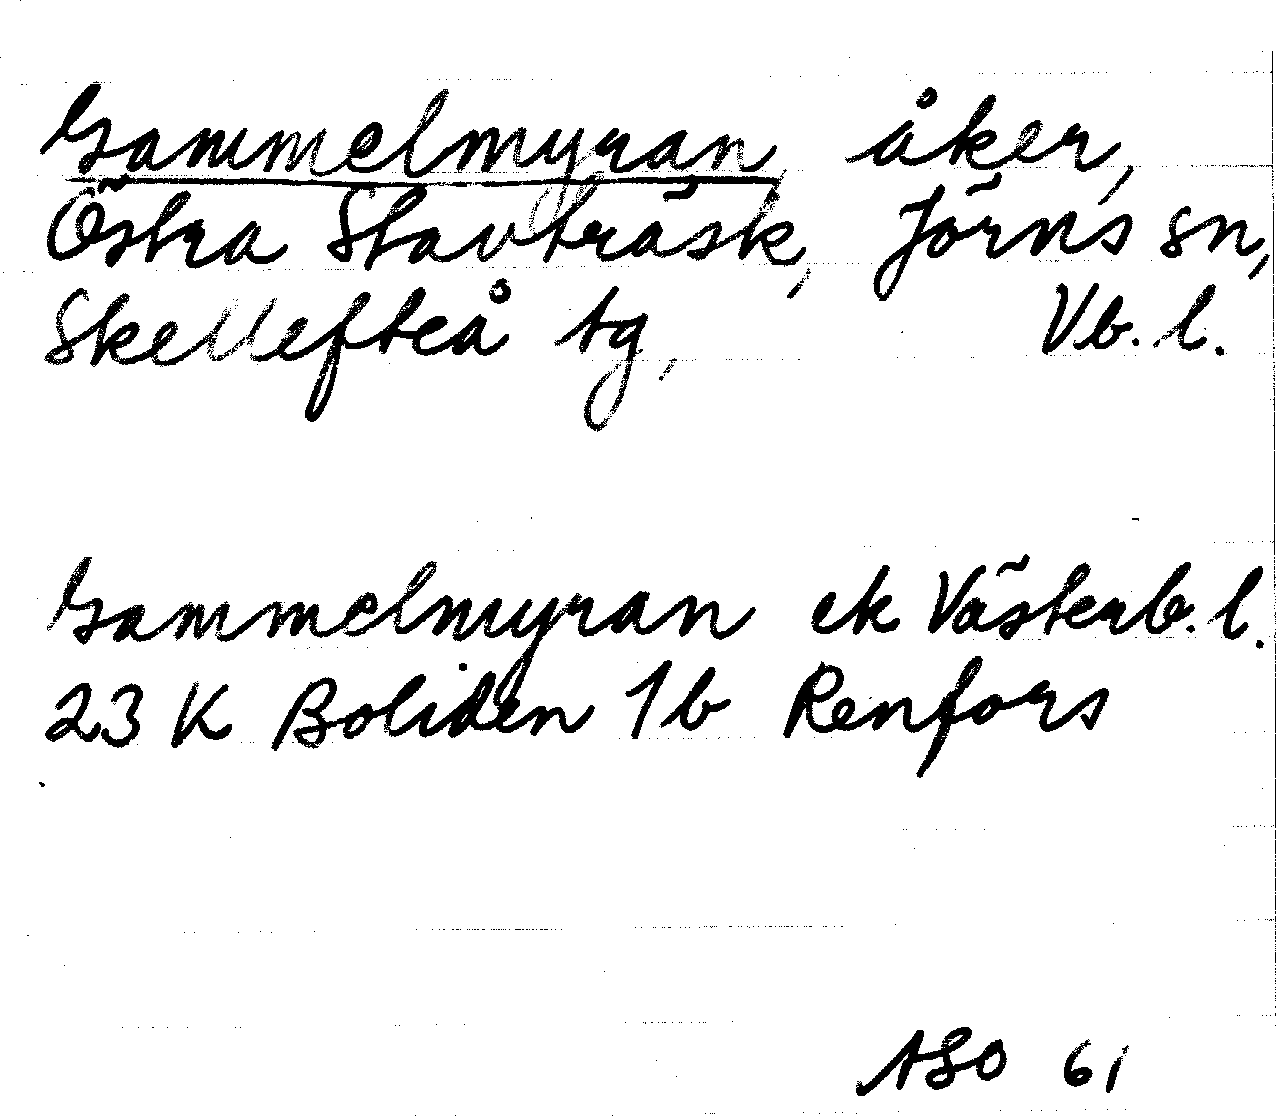 Gammelmyran, åker,
Östra Stavträsk, Jörns sn,
Skellefteå tg, Vb. l.
Gammelmyran ek Västerb. l.
23 K Boliden 1b Renfors
ASO 61